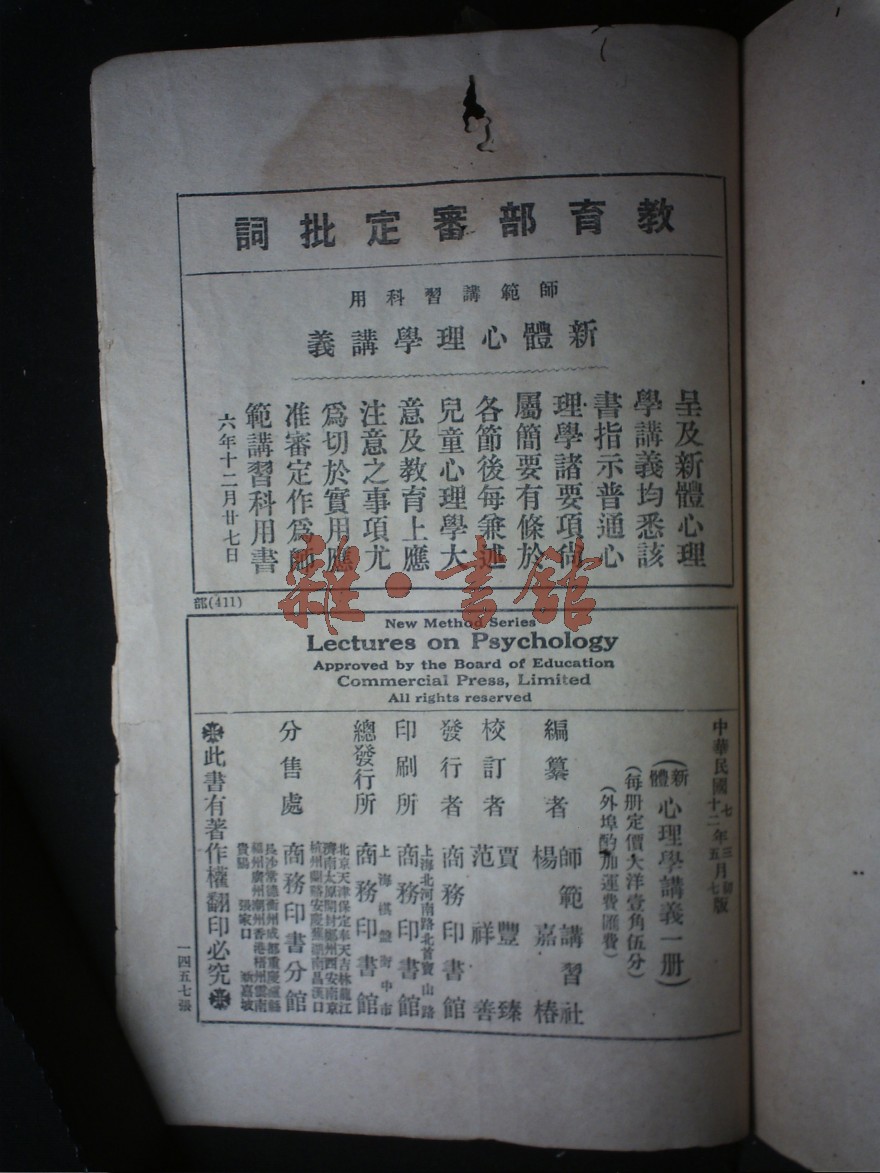 教育部審定批詞
師範講習科用
新體心理學講義
呈及新體心理
學講義均悉該
書指示普通心
理學諸要項尙
屬簡要有條於
各節後每兼述
兒童心理學大
意及教育上應
注意之事項尤
爲切於實用應
准審定作爲師
範講習科用書
六年十二月廿七日
部(411)
雜·書館
New Method Series
Lectures on Psychology
Approved by the Board of Education
Commercial Press, Limited
All rights reserved
中華民國七年三月初版
十二年五月七版
(新體心理學講義一册)
(每册定價大洋壹角伍分)
(外埠酌加運費匯費)
編纂者 師範講習社
楊嘉椿
校訂者 賈豐臻
范祥善
發行者 商務印書館
上海北河南路北首寶山路
印刷所 商務印書館
上海棋盤街中市
總發行所 商務印書館
北京天津保定奉天吉林龍江
濟南太原開封鄭州西安南京
杭州蘭谿安慶蕪湖南昌漢口
分售處 商務印書分館
長沙常德衡州成都重慶瀘縣
福州廣州潮州香港梧州雲南
貴陽 張家口 新嘉坡
此書有著作權翻印必究
一四五七張